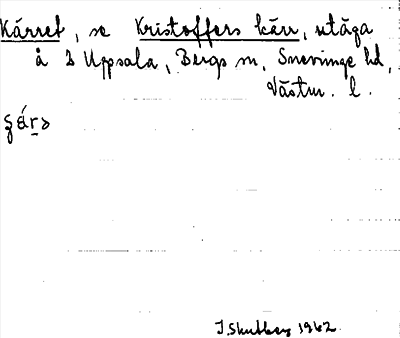 Kärret, se Kristoffers kärr, utäga
å 2 Uppsala, Bergs sn, Snevringe hd,
Västm. l.